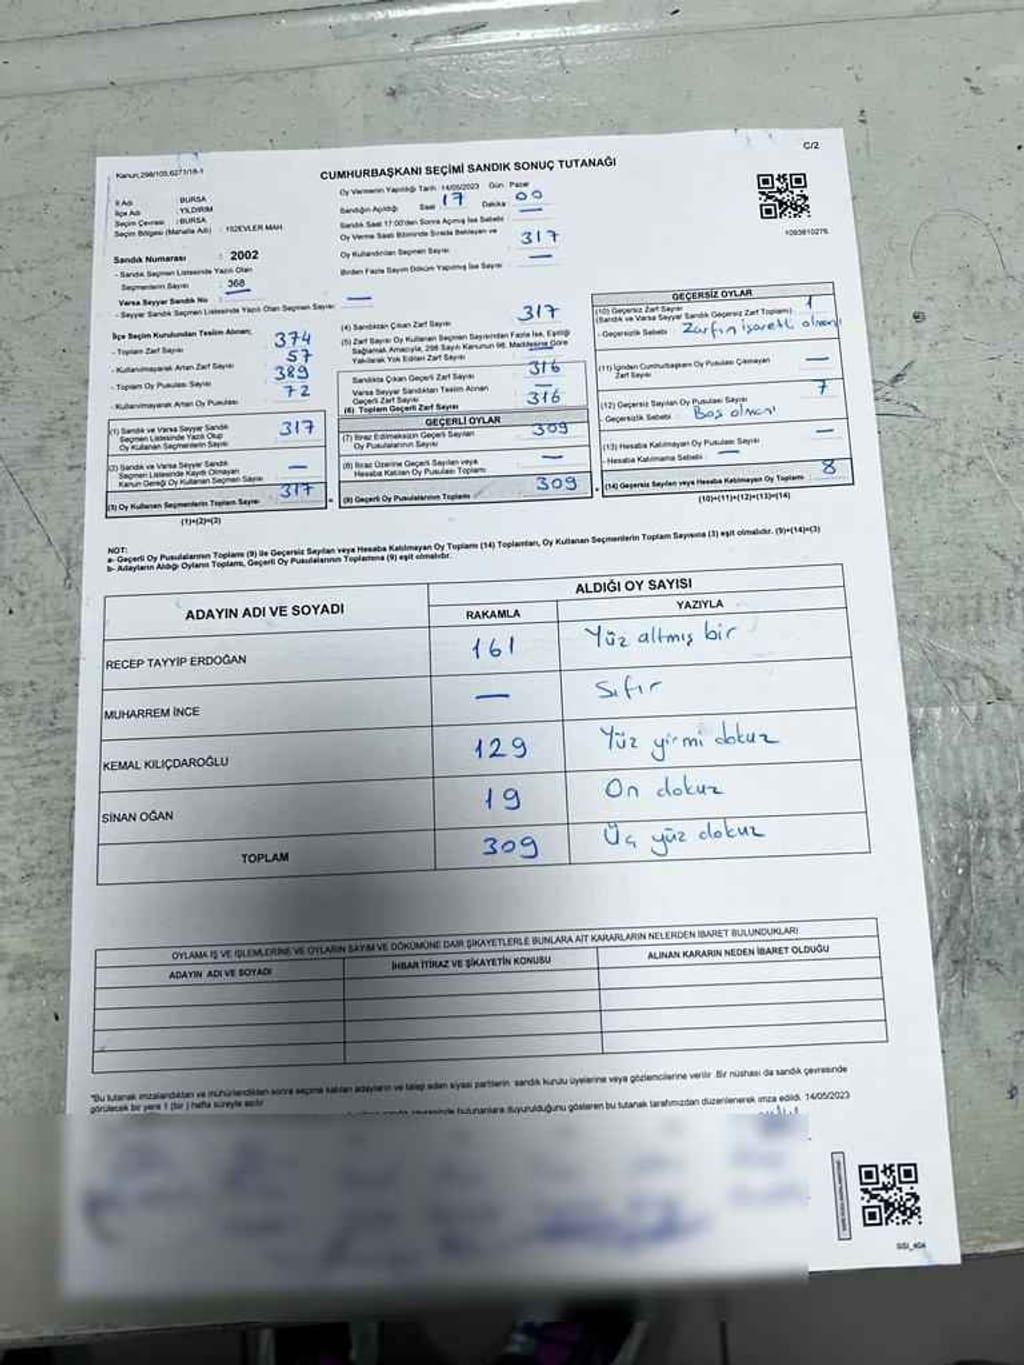 C/2
Kanun;298/105,6271/18-1
CUMHURBAŞKANI SEÇİMİ SANDIK SONUÇ TUTANAĞI
İl Adı : BURSA
İlçe Adı : YILDIRIM
Seçim Çevresi : BURSA
Seçim Bölgesi (Mahalle Adı) : 152EVLER MAH.
Oy Vermenin Yapıldığı Tarih : 14/05/2023 Gün : Pazar
Sandığın Açıldığı Saat 17 Dakika 00
Sandık Saat 17:00'den Sonra Açılmış İse Sebebi —
Oy Verme Saati Bitiminde Sırada Bekleyen ve
Oy Kullandırılan Seçmen Sayısı 317
Birden Fazla Sayım Döküm Yapılmış İse Sayısı —
Sandık Numarası : 2002
- Sandık Seçmen Listesinde Yazılı Olan
Seçmenlerin Sayısı : 368
Varsa Seyyar Sandık No :
- Seyyar Sandık Seçmen Listesinde Yazılı Olan Seçmen Sayısı —
İlçe Seçim Kurulundan Teslim Alınan;
- Toplam Zarf Sayısı 374
- Kullanılmayarak Artan Zarf Sayısı 57
- Toplam Oy Pusulası Sayısı 389
- Kullanılmayarak Artan Oy Pusulası 72
(1) Sandık ve Varsa Seyyar Sandık
Seçmen Listesinde Yazılı Olup
Oy Kullanan Seçmenlerin Sayısı 317
(2) Sandık ve Varsa Seyyar Sandık
Seçmen Listesinde Kaydı Olmayan
Kanun Gereği Oy Kullanan Seçmen Sayısı —
(3) Oy Kullanan Seçmenlerin Toplam Sayısı 317
(1)+(2)=(3)
(4) Sandıktan Çıkan Zarf Sayısı 317
(5) Zarf Sayısı Oy Kullanan Seçmen Sayısından Fazla İse, Eşitliği
Sağlamak Amacıyla, 298 Sayılı Kanunun 98. Maddesine Göre
Yakılarak Yok Edilen Zarf Sayısı —
Sandıkta Çıkan Geçerli Zarf Sayısı 316
Varsa Seyyar Sandıktan Teslim Alınan
Geçerli Zarf Sayısı —
(6) Toplam Geçerli Zarf Sayısı 316
GEÇERLİ OYLAR
(7) İtiraz Edilmeksizin Geçerli Sayılan
Oy Pusulalarının Sayısı 309
(8) İtiraz Üzerine Geçerli Sayılan veya
Hesaba Katılan Oy Pusulası Toplamı —
(9) Geçerli Oy Pusulalarının Toplamı 309
1093610276
GEÇERSİZ OYLAR
(10) Geçersiz Zarf Sayısı
(Sandık ve Varsa Seyyar Sandık Geçersiz Zarf Toplamı) 1
- Geçersizlik Sebebi : Zarfın işaretli olması
(11) İçinden Cumhurbaşkanı Oy Pusulası Çıkmayan
Zarf Sayısı —
(12) Geçersiz Sayılan Oy Pusulası Sayısı 7
- Geçersizlik Sebebi : Boş olması
(13) Hesaba Katılmayan Oy Pusulası Sayısı —
- Hesaba Katılmama Sebebi : —
(14) Geçersiz Sayılan veya Hesaba Katılmayan Oy Toplamı 8
(10)+(11)+(12)+(13)=(14)
NOT:
a- Geçerli Oy Pusulalarının Toplamı (9) ile Geçersiz Sayılan veya Hesaba Katılmayan Oy Toplamı (14) Toplamları, Oy Kullanan Seçmenlerin Toplam Sayısına (3) eşit olmalıdır. (9)+(14)=(3)
b- Adayların Aldığı Oyların Toplamı, Geçerli Oy Pusulalarının Toplamına (9) eşit olmalıdır.
ADAYIN ADI VE SOYADI ALDIĞI OY SAYISI
RAKAMLA YAZIYLA
RECEP TAYYİP ERDOĞAN 161 Yüz altmış bir
MUHARREM İNCE — Sıfır
KEMAL KILIÇDAROĞLU 129 Yüz yirmi dokuz
SİNAN OĞAN 19 On dokuz
TOPLAM 309 Üç yüz dokuz
OYLAMA İŞ VE İŞLEMLERİNE VE OYLARIN SAYIM VE DÖKÜMÜNE DAİR ŞİKAYETLERLE BUNLARA AİT KARARLARIN NELERDEN İBARET BULUNDUKLARI
ADAYIN ADI VE SOYADI İHBAR İTİRAZ VE ŞİKAYETİN KONUSU ALINAN KARARIN NEDEN İBARET OLDUĞU
"Bu tutanak imzalandıktan ve mühürlendikten sonra seçime katılan adayların ve talep eden siyasi partilerin sandık kurulu üyelerine veya gözlemcilerine verilir. Bir nüshası da sandık çevresinde
görülecek bir yere 1 (bir) hafta süreyle asılır.
bulunanlara duyurulduğunu gösteren bu tutanak tarafımızdan düzenlenerek imza edildi. 14/05/2023